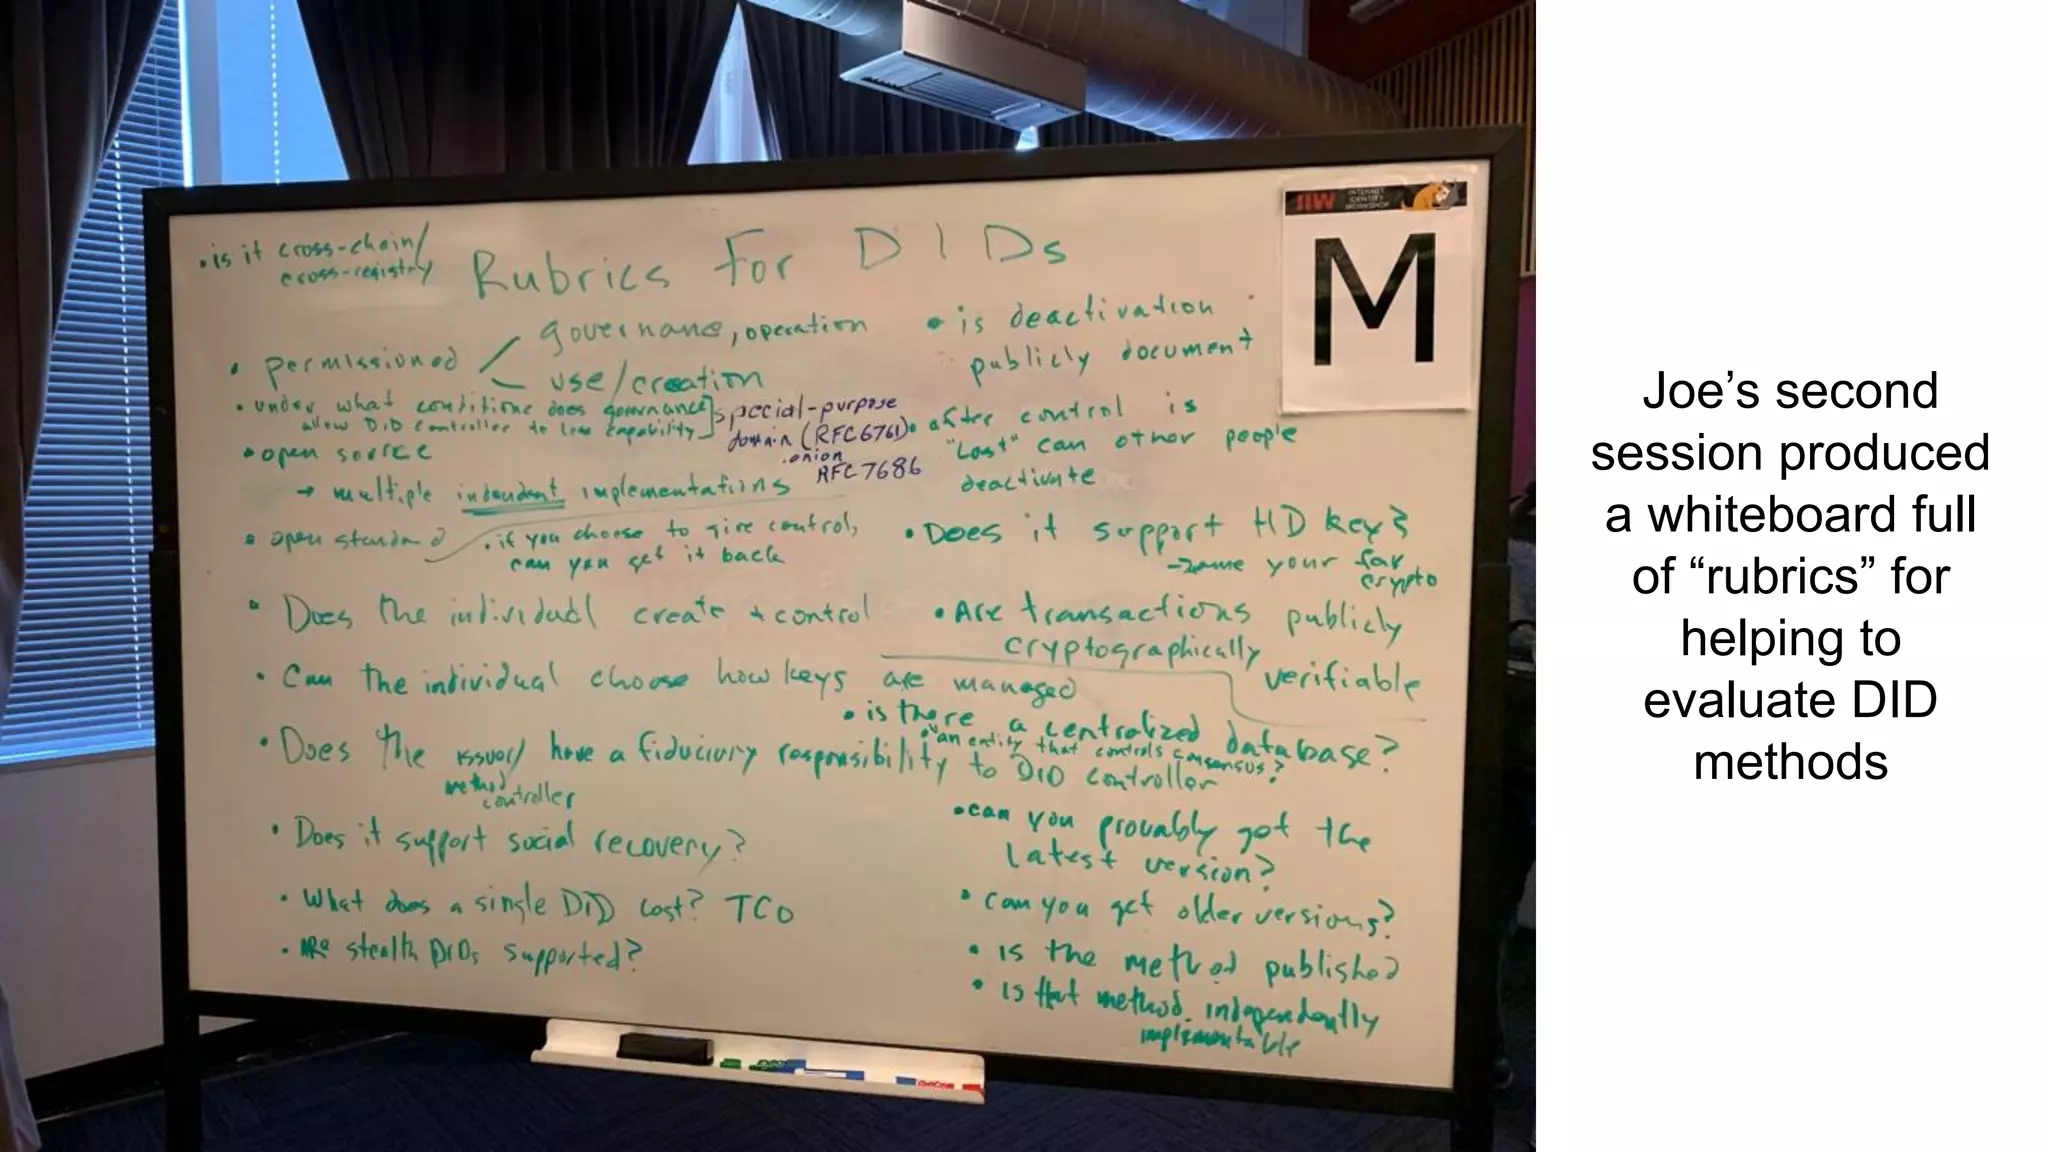 • is it cross-chain/
cross-registry
Rubrics for DIDs
IIW INTERNET
IDENTITY
WORKSHOP
M
• permissioned
governance, operation
use/creation
• under what conditions does governance
allow DID controller to lose capability
special-purpose
domain (RFC6761)
.onion
RFC 7686
• open source
→ multiple indendent implementations
• open standard
• if you choose to give control,
can you get it back
• Does the individual create + control
• Can the individual choose how keys are managed
• Does the issuer/ have a fiduciary responsibility to DID controller
method
controller
• Does it support social recovery?
• What does a single DID cost? TCO
• Are stealth DIDs supported?
• is deactivation
publicly document
• after control is
"Lost" can other people
deactivate
• Does it support HD keys
name your fav
crypto
• Are transactions publicly
cryptographically
verifiable
• is there a centralized database?
• an entity that controls consensus?
• can you provably get the
latest version?
• can you get older versions?
• is the method published
• is that method independently
implementable
Joe’s second
session produced
a whiteboard full
of “rubrics” for
helping to
evaluate DID
methods